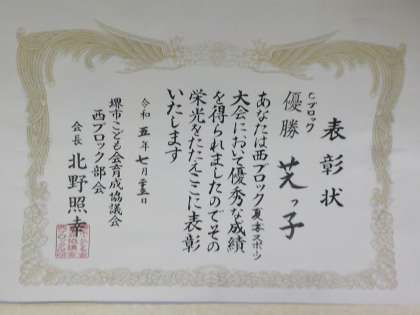 表彰状
Cブロック
優勝 芝っ子
あなたは西ブロック夏季スポーツ
大会において優秀な成績
を得られましたのでその
栄光をたたえここに表彰
いたします
令和五年七月二十五日
堺市こども会育成協議会
西ブロック部会
会長 北野照幸